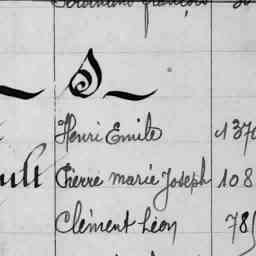 S
Henri Emile 137
ult Pierre marie Joseph 108
Clément Léon 78